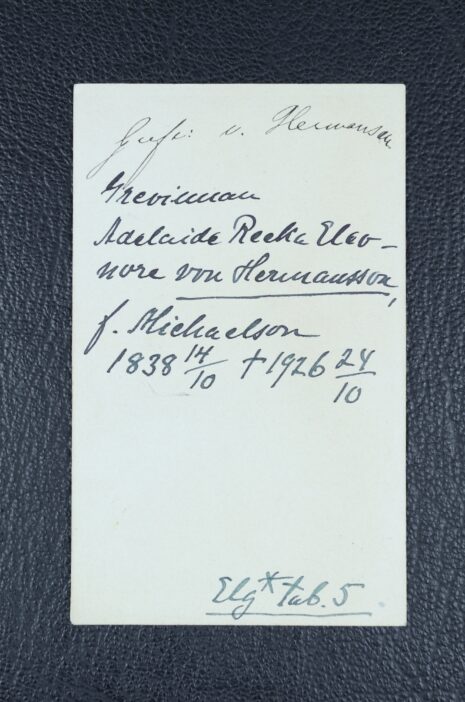 Grefv: v. Hermansson
Grevinnan
Adelaide Recka Eleo-
nore von Hermansson,
f. Michaelson
1838 14/10 † 1926 24/10
Elg * tab. 5.